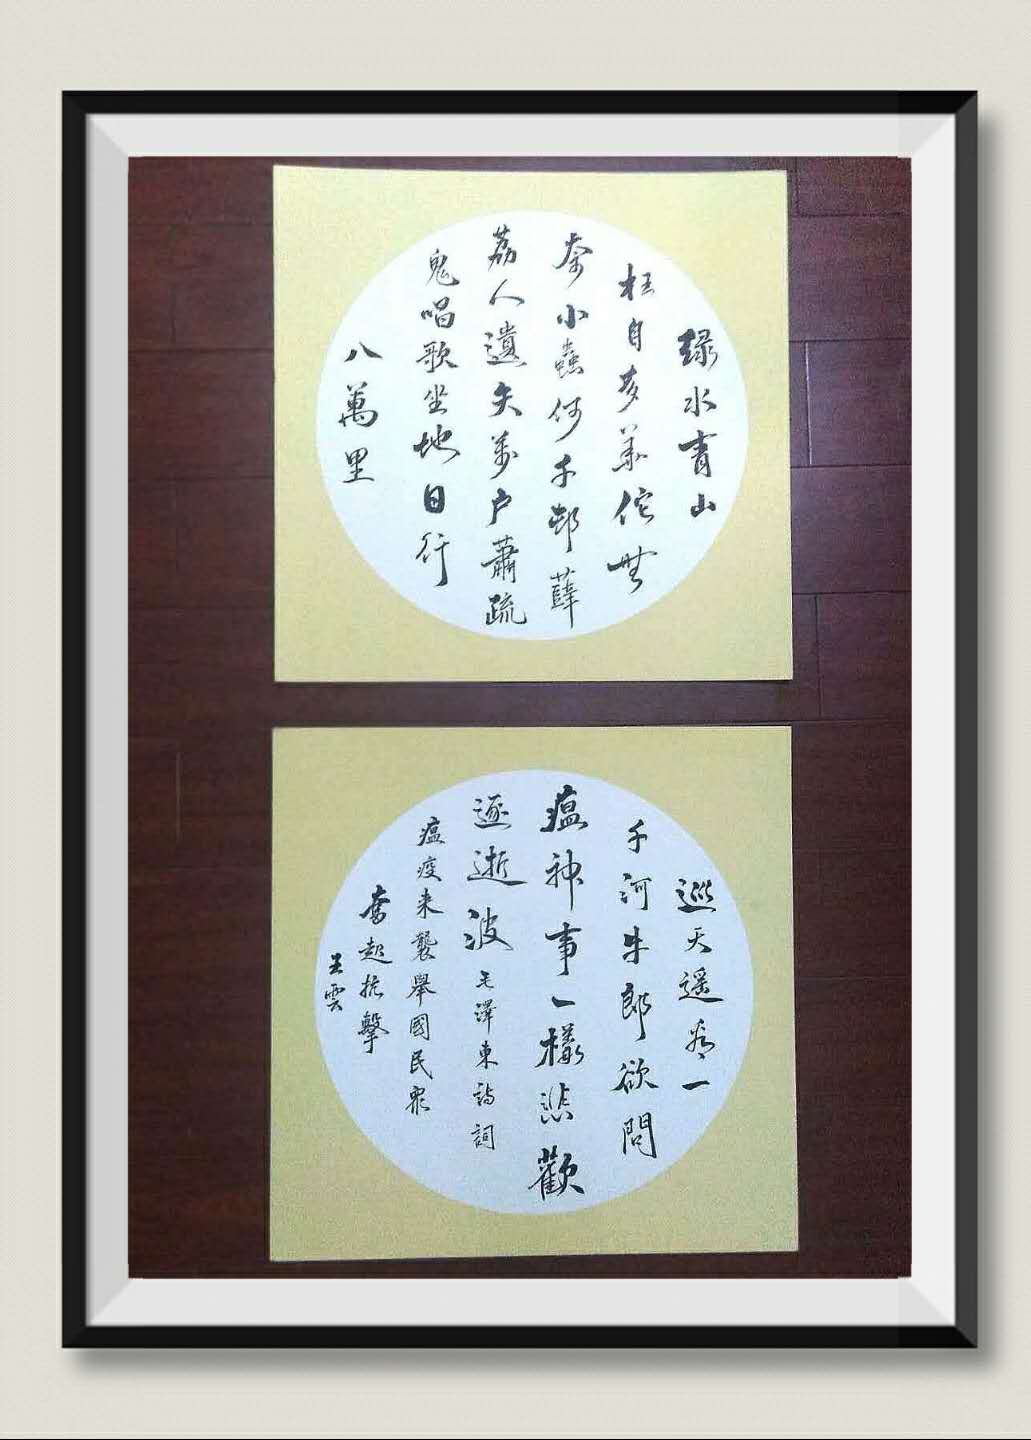 緑水青山
枉自多華佗無
奈小蟲何千邨薜
荔人遺矢萬户蕭疏
鬼唱歌坐地日行
八萬里
巡天遥看一
千河牛郎欲問
瘟神事一樣悲歡
逐逝波 毛澤東詩詞
瘟疫来襲舉國民衆
奮起抗擊
王雲